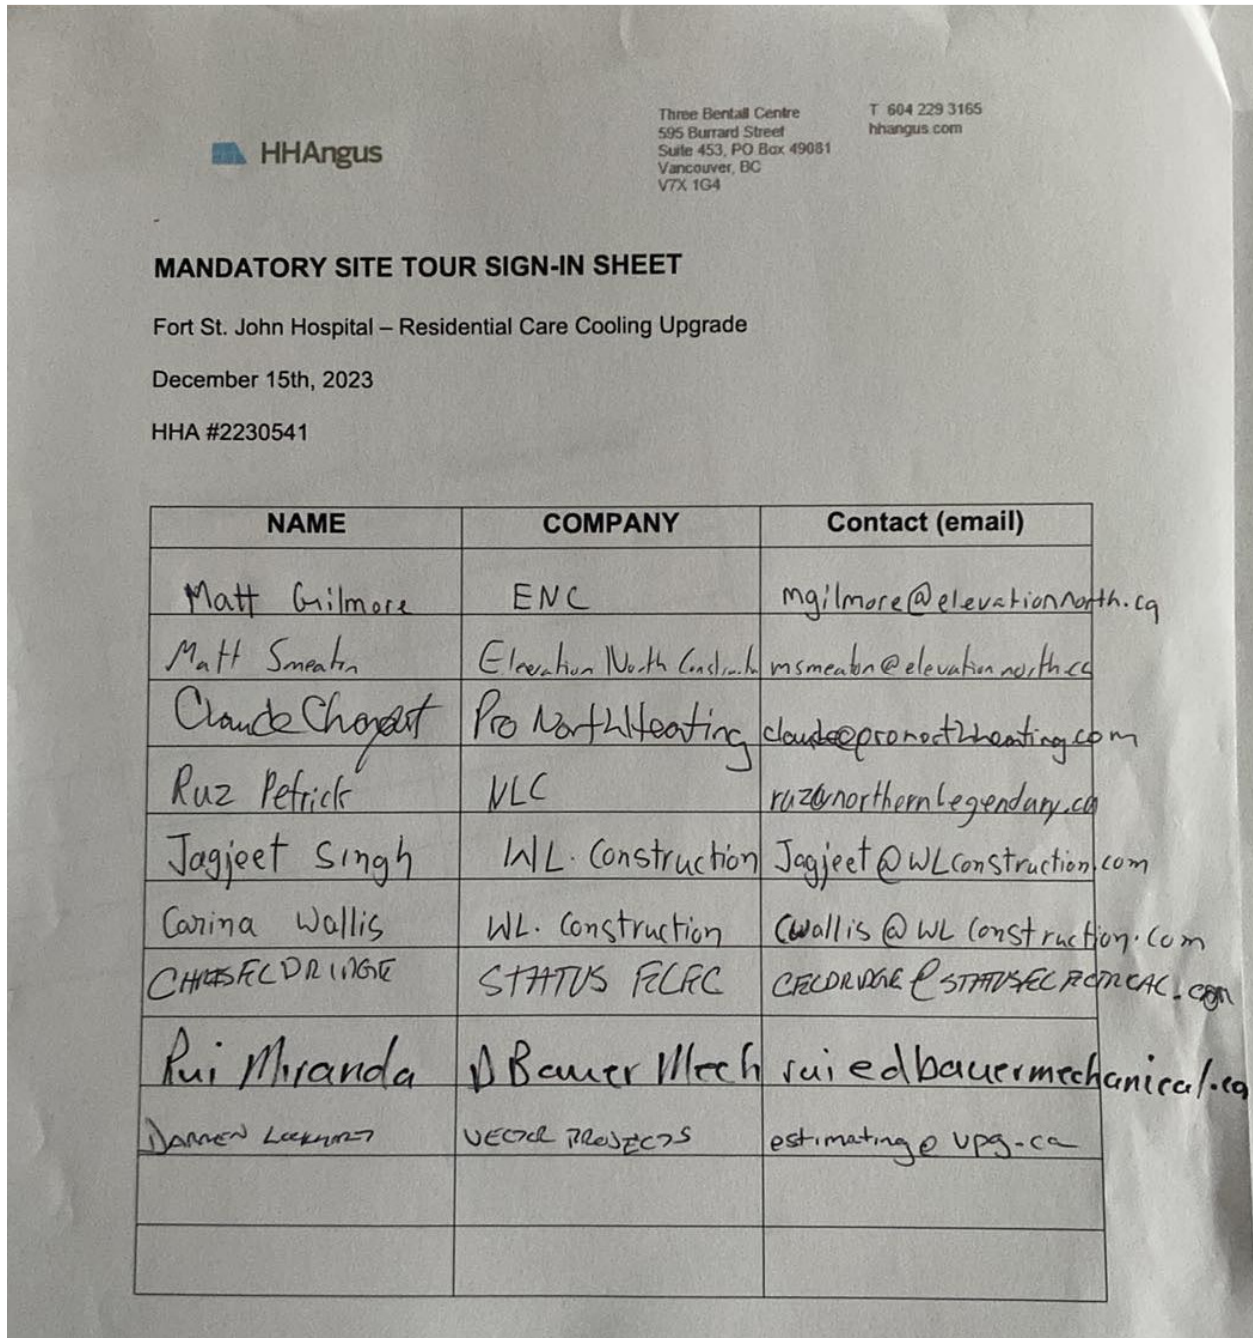 HHAngus
Three Bentall Centre
595 Burrard Street
Suite 453, PO Box 49081
Vancouver, BC
V7X 1G4
T 604 229 3165
hhangus.com
MANDATORY SITE TOUR SIGN-IN SHEET
Fort St. John Hospital – Residential Care Cooling Upgrade
December 15th, 2023
HHA #2230541
NAME COMPANY Contact (email)
Matt Gilmore ENC mgilmore@elevationnorth.ca
Matt Smeaton Elevation North msmeaton@elevationnorth.ca
Claude Pro North Heating claude@pronorthheating.com
Ruz Petrick NLC ruz@northernlegendary.ca
Jagjeet Singh WL. Construction Jagjeet@WLconstruction.com
Carina Wallis WL. Construction Cwallis@WLConstruction.com
CHRIS ELDRIDGE STATUS ELEC CELDRIDGE@STATUSELECTRICAL.com
Rui Miranda D Bauer Mech rui@dbauermechanical.ca
DARREN VECTOR PROJECTS estimating@vpg.ca